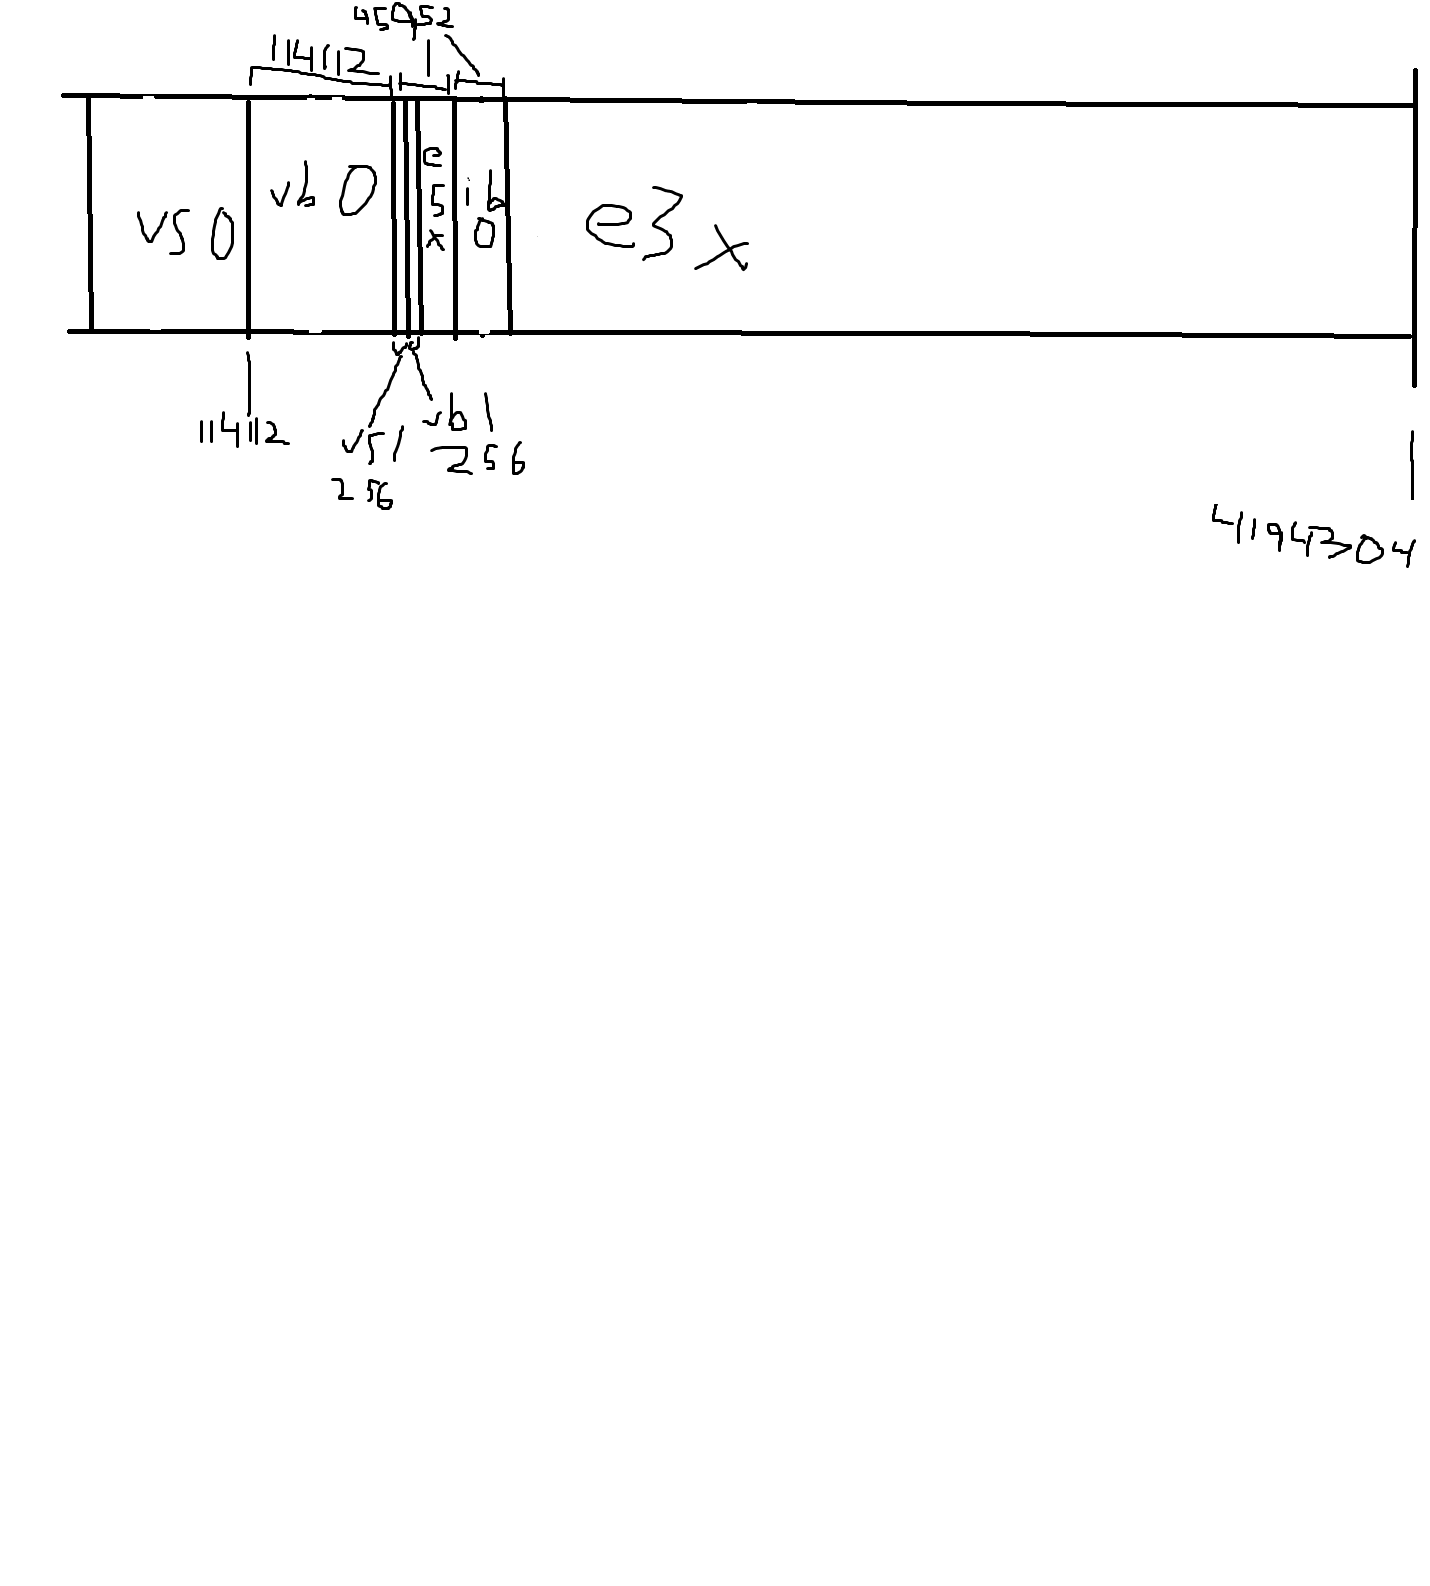 45952
114112
vs 0
vb 0
e
5
x
ib
0
e3x
114112
vs1
256
vb1
256
4194304